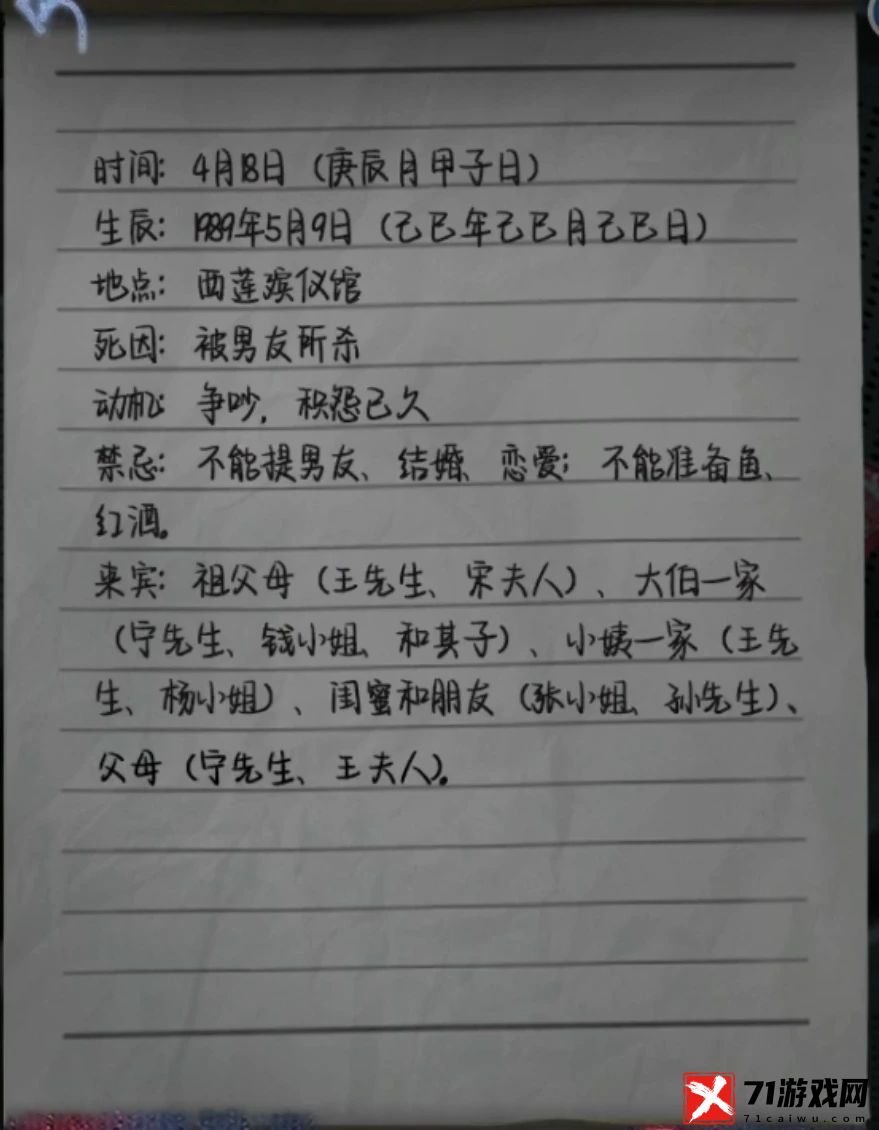 时间：4月18日（庚辰月甲子日）
生辰：1989年5月9日（己巳年己巳月己巳日）
地点：西莲殡仪馆
死因：被男友所杀
动机：争吵，积怨已久
禁忌：不能提男友、结婚、恋爱；不能准备鱼、
红酒。
来宾：祖父母（王先生、宋夫人）、大伯一家
（宁先生、钱小姐、和其子）、小姨一家（王先
生、杨小姐）、闺蜜和朋友（张小姐、孙先生）、
父母（宁先生、王夫人）。
71游戏网
71caiwu.com